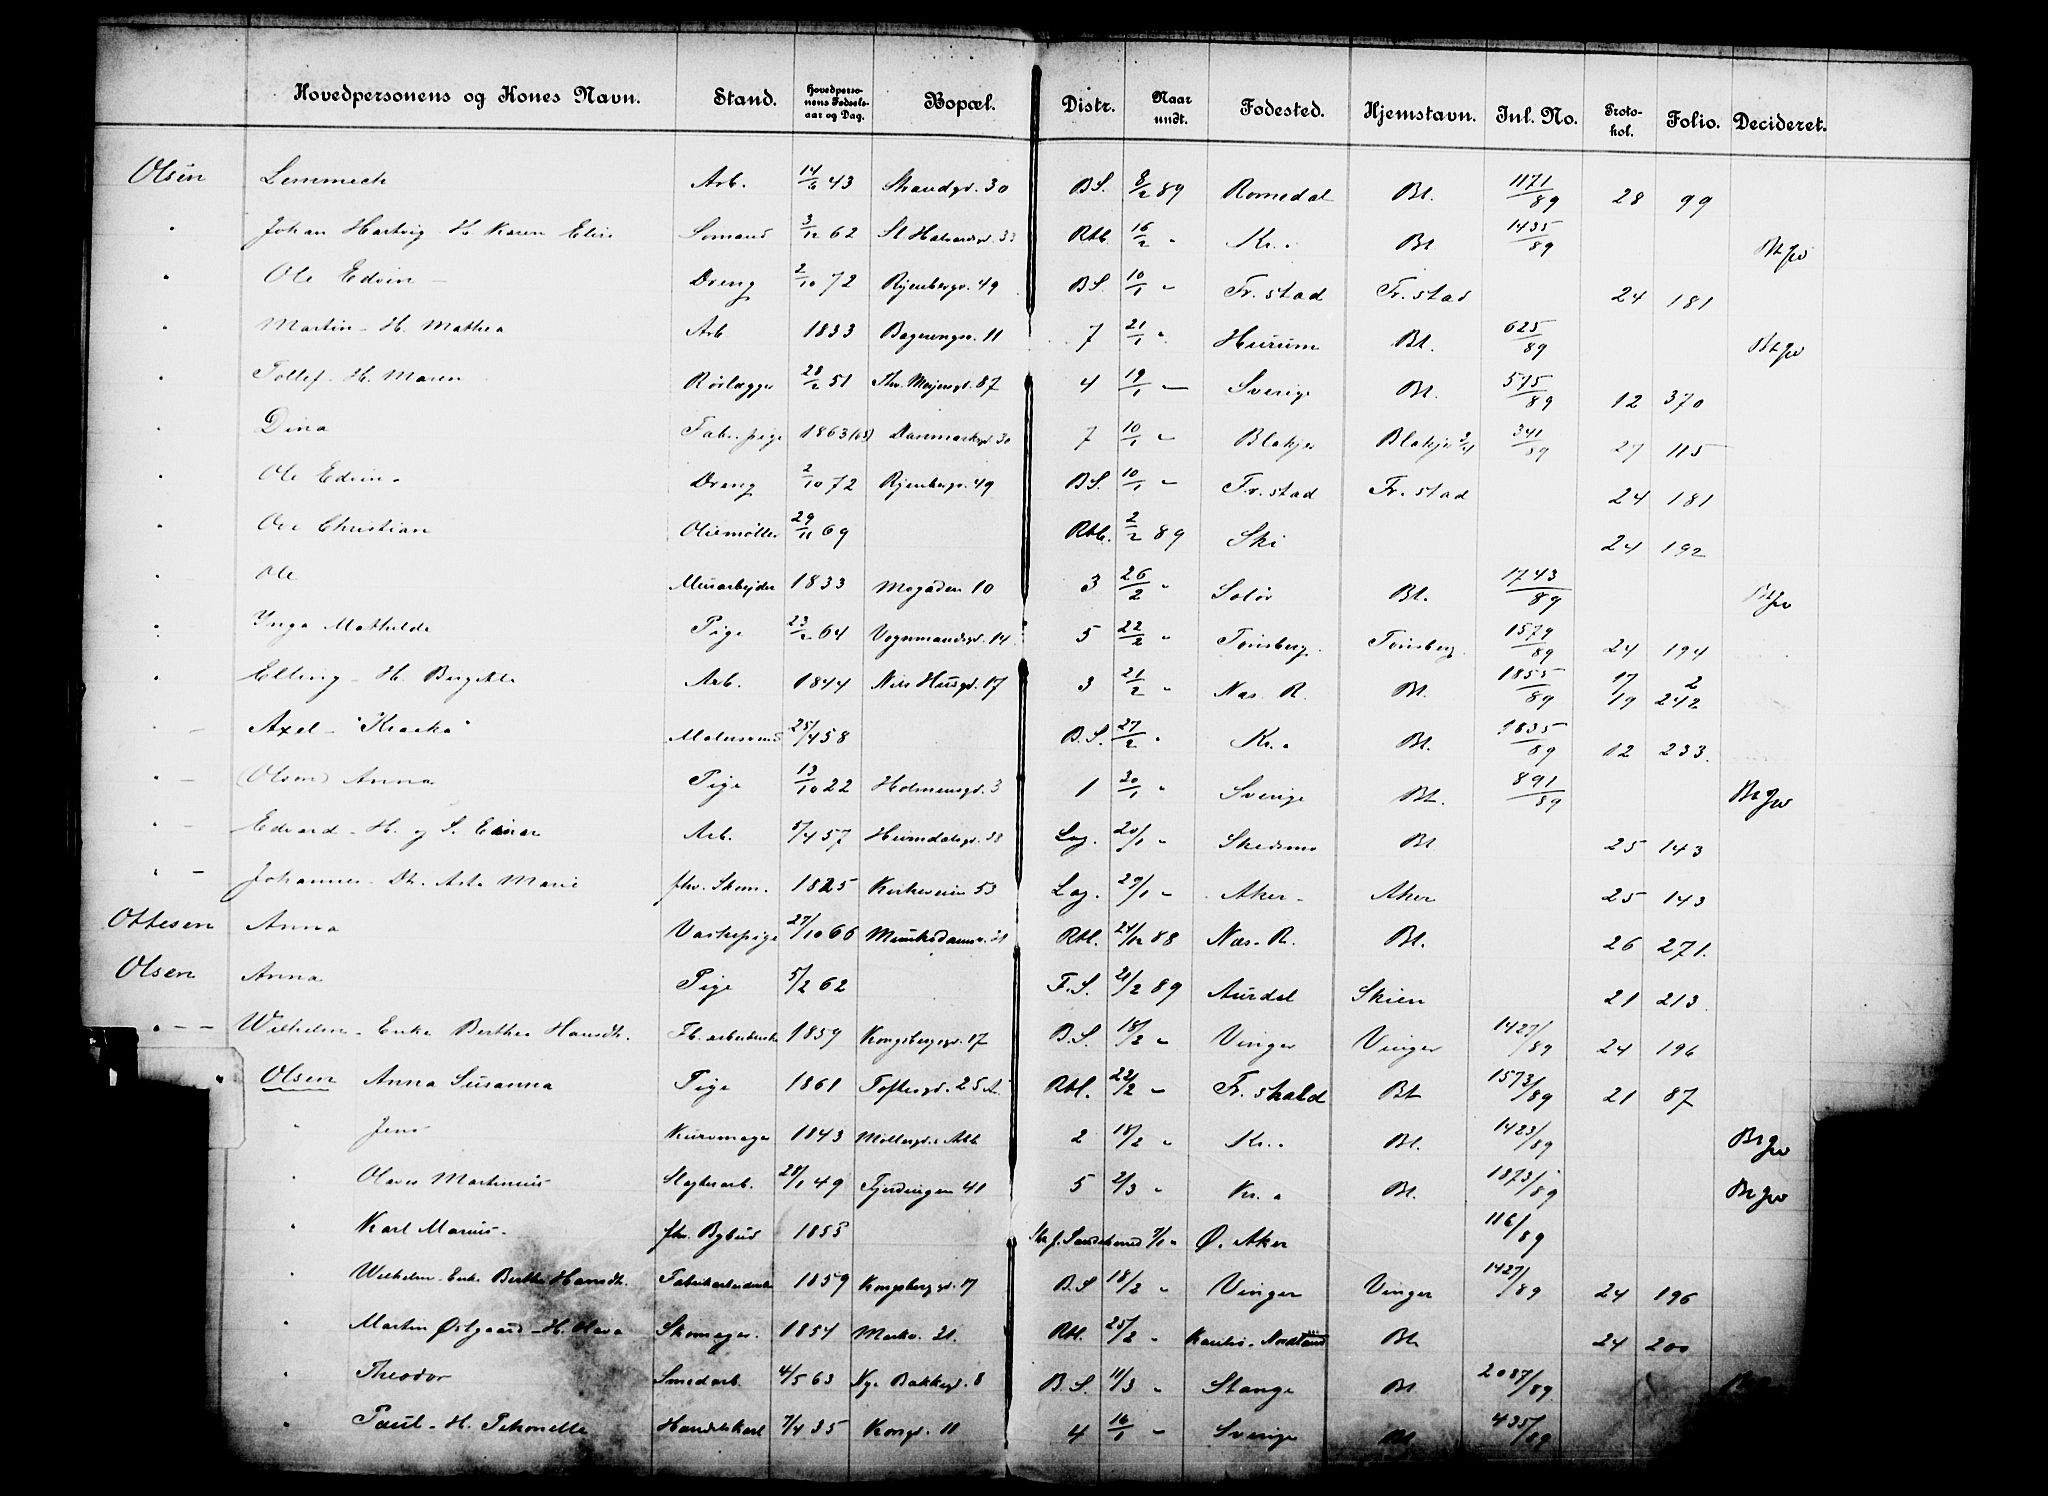 Hovedpersonens og Kones Navn. Stand. Hovedpersonens Fødselsaar og Dag. Bopæl. Distr. Naar undt. Fødested. Hjemstavn. Inl. No. Protokol. Folio. Decideret.
Olsen Lemmech Arb. 14/6 43 Strandgd. 30 B.S. 8/2 89 Romedal Bt. 1171/89 28 99
" Johan Hartvig H. Karen Elise Sømand 3/12 62 St Halvardsgd. 33 Rtl. 16/2 " Kr.a Bt 1435/89 Bt
" Ole Edvin Dreng 2/10 72 Ryenbergv. 49 B.S. 10/1 " Fr.stad Fr.stad 24 181
" Martin - H. Mathea Arb 1833 11 7 21/1 " Hurum Bt. 625/89 Bt
" Tollef - H. Maren Rørlægger 28/2 51 Thv. Meyersgd. 87 4 19/1 " Sverige Bt. 515/89 12 370
" Dina Fabr.pige 1863 (65) Danmarksgd. 30 7 10/1 " Blakjer Blakjer 341/89 27 115
" Ole Edvin Dreng 2/10 72 Ryenbergv. 49 B.S. 10/1 " Fr.stad Fr.stad 24 181
" Ove Christian Oliemøller 29/11 69 Rtl. 2/2 89 Ski 24 192
" Ole Murarbejder 1833 Mogaden 10 3 26/2 " Solør Bt. 1743/89 Bt
" Inga Mathilde Pige 23/2 64 Vognmandsgd. 14 5 22/2 " Tønsberg Tønsberg 1579/89 24 194
" Elling - H. Birgitte Arb. 1844 Nils Husgd. 17 3 21/2 " Næs. R. Bt. 1855/89 17 2
19 242
" Axel - "Kraaka" Malersvend 25/4 58 B.S. 27/2 " Kr.a Bt. 1835/89 12 233
" (Olsen) Anna Pige 13/10 22 Holmensgd. 3 1 30/1 " Sverige Bt. 891/89 Bt
" Edvard - H. og S. Einar Arb. 5/4 57 Heimdalsgd. 38 Lag. 20/1 " Skedsmo Bt 25 143
" Johannes - Dt. Asta Marie fhv. Skom. 1825 Kirkeveien 53 Lag. 29/1 " Aker Aker 25 143
Ottesen Anna Vaskepige 27/10 66 Munkedamsv. 21 Rtl. 24/12 88 Næs. R. Bt. 26 271.
Olsen Anna Pige 5/2 62 F.S. 21/2 89 Aurdal Skien 21 213
" Wilhelm - Enke Berthea Hansdt. Fb. arbeiderske 1859 Kongsbergsgd. 17 B.S. 18/2 " Vinger Vinger 1427/89 24 196
" Olsen Anna Susanna Pige 1861 Toftesgd. 25 A. Rtl. 22/2 " Fr.shald Bt 1573/89 21 87
" Jens Kurvmager 1843 Møllergd. 2 18/2 " Kr.a Bt. 1423/89 Bt
" Olaves Martinius Slagterarb. 28/1 49 Fjerdingen 41 5 2/3 " Kr.a Bt. 1873/89 Bt
" Karl Marius fhv. Bybud 1855 7/1 " Ø. Aker 116/89
" Wilhelm - Enke Berthe Hansdt. Fabrikarbeiderske 1859 Kongsbergsgd. 17 B.S 18/2 " Vinger Vinger 1427/89 24 196
" Martin Østgaard - H. Olava Skomager. 1854 Markv. 21. Rtl. 25/2 " Nordland Bt 24 200
" Theodor Smedarb. 4/5 63 Ny. Bakkegd. 8 B.S. 11/3 " Stange Bt 2087/89
" Paul - H. Petronelle Handelskarl 7/4 35 Kongv. 11 4 16/1 " Sverige Bt 435/89